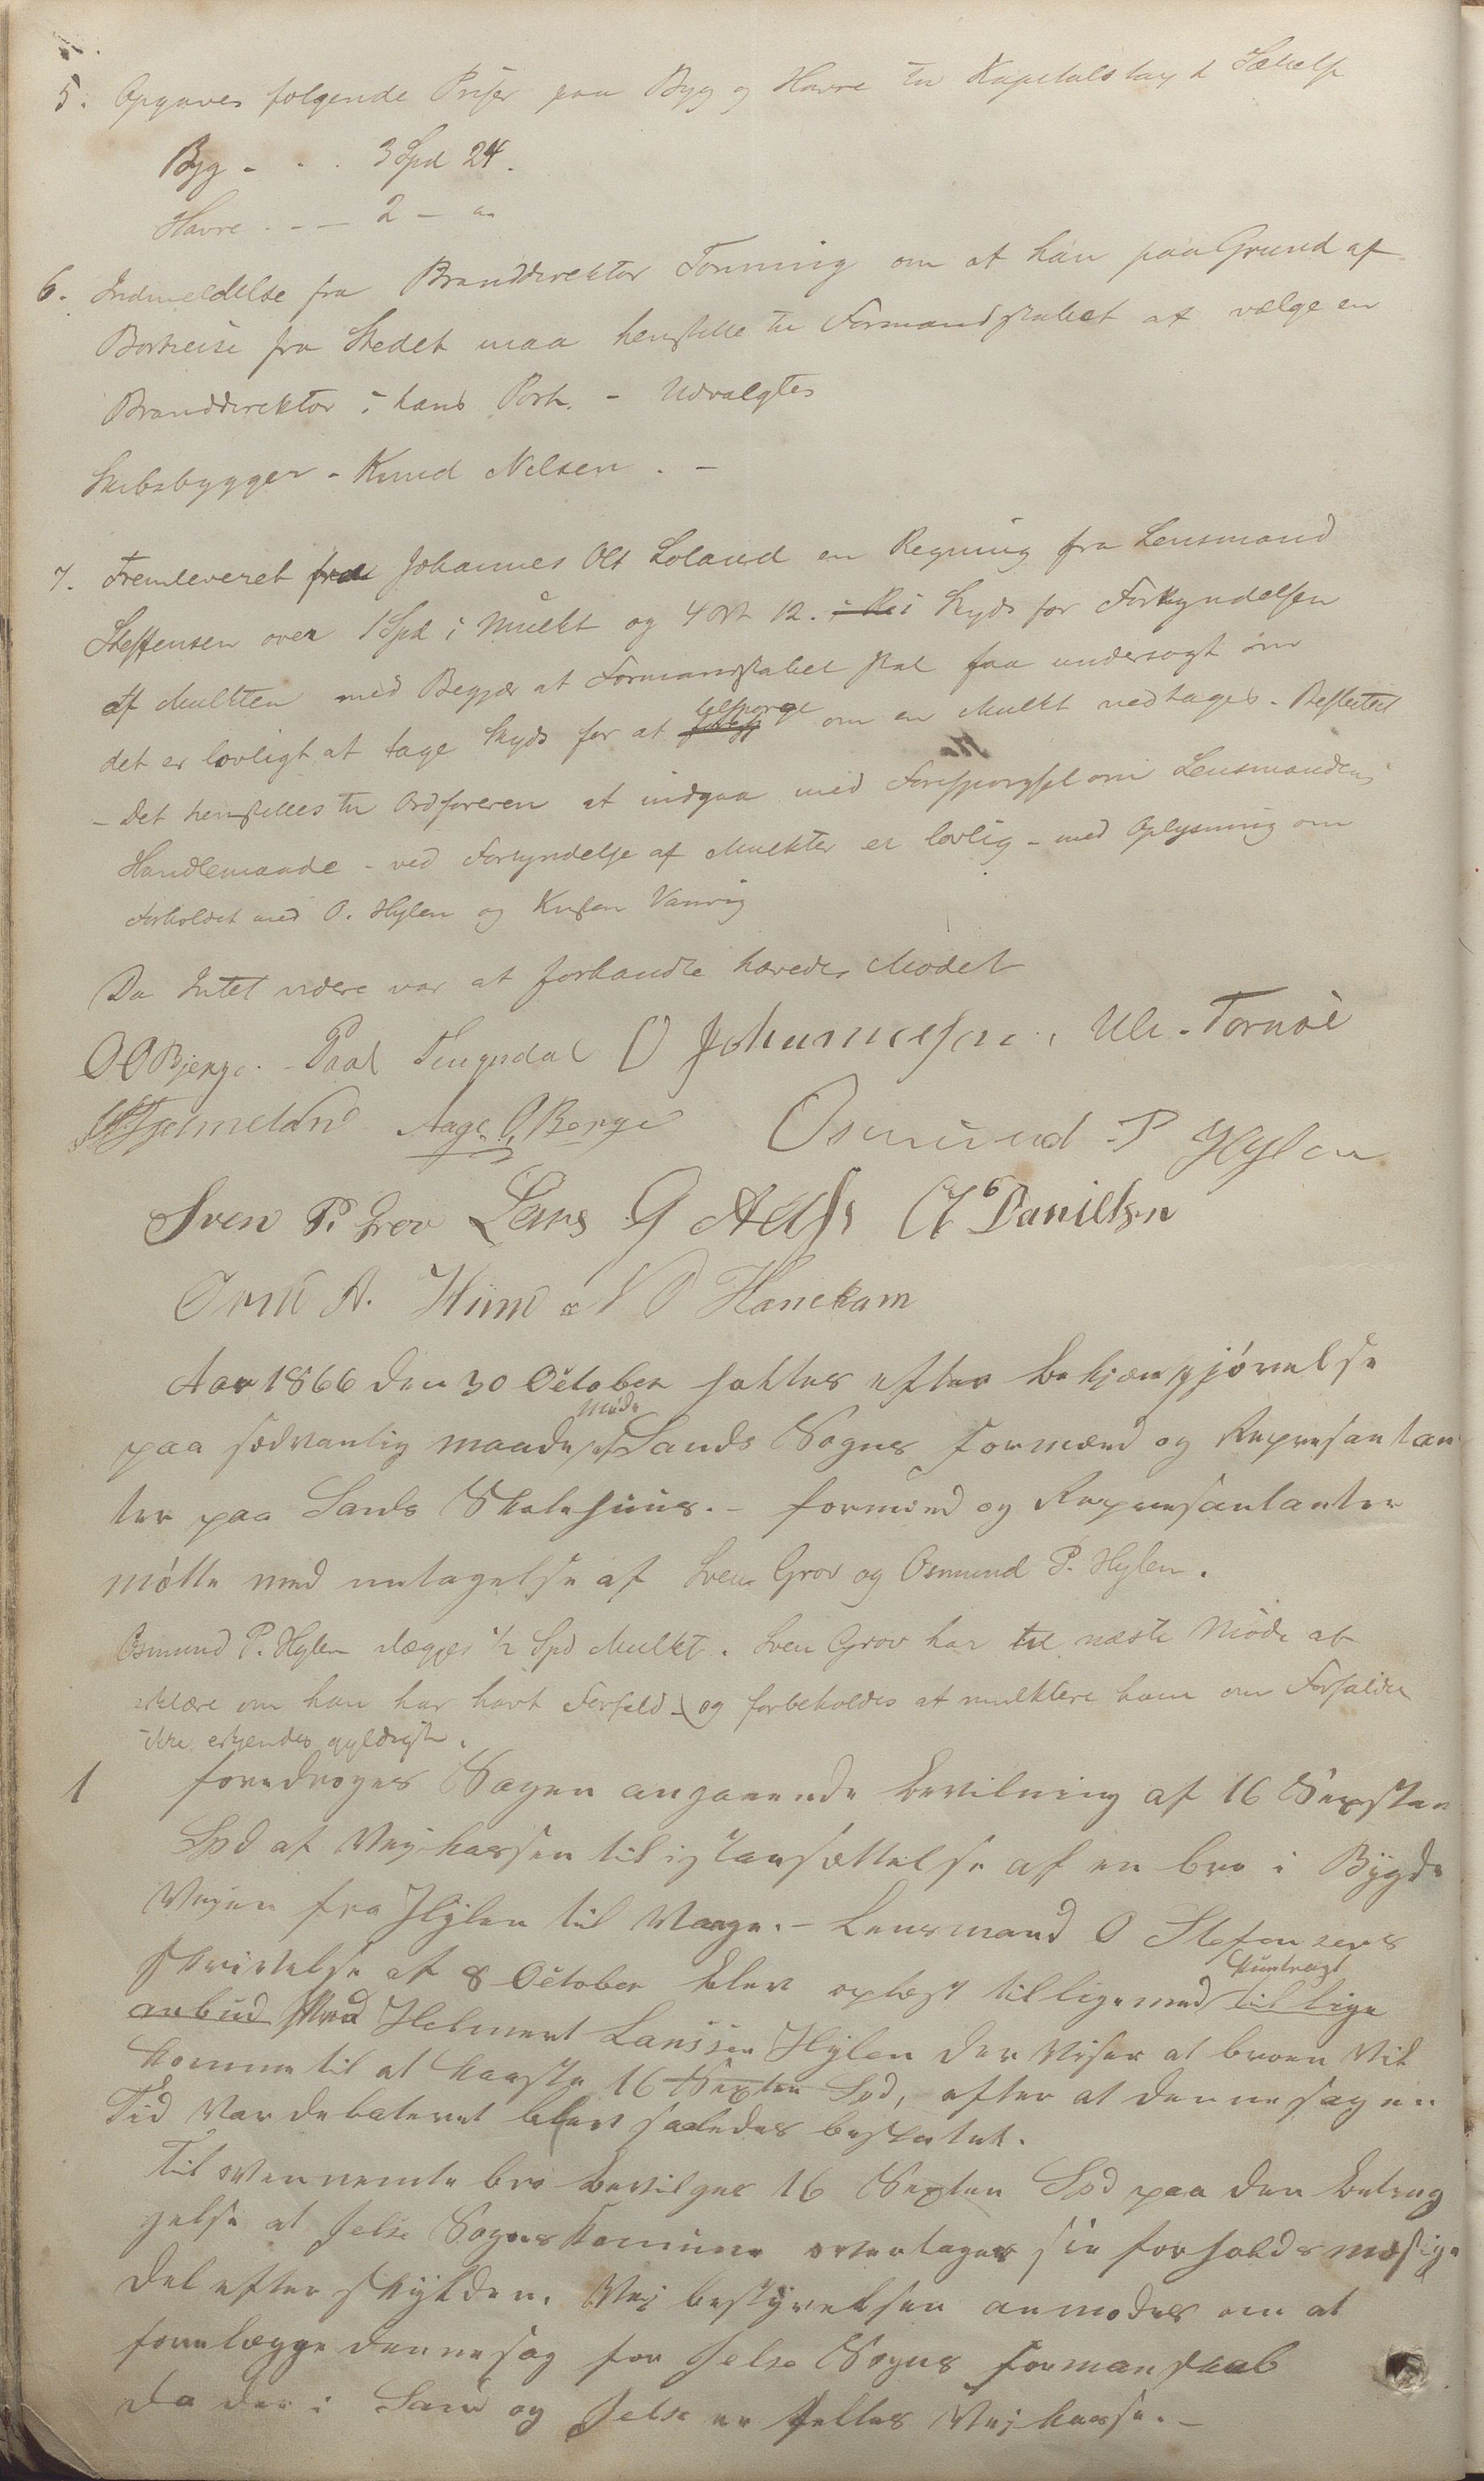 5. Opgaves følgende Priser paa Byg og Havre til Kapitelstaxt
Byg - . . 3 Spd 24.
Havre . - - 2 - "
6. Indmeldelse fra Branddirektør Tonning om at han paa Grund af
Bortreise fra Stedet maa henstille til Formandskabet at vælge en
Branddirektør i hans Post. - Udvalgtes
Skibsbygger - Knud Nilsen . -
7. Fremleveret fra Johannes Ols Loland en Regning fra Lensmand
Steffensen over 1 Spd i Mulkt og 4 Ort 12. i Skyds for Forkyndelsen
af Mulkten med Begjær at Formandskabet skal faa undersøgt om
det er lovligt at tage Skyds for at tilspørge om en Mulkt vedtages.
- Det henstilles til Ordføreren at indgaa med Forespørgsel om Lensmandens
Handlemaade - ved Forkyndelse af Mulkter er lovlig - med Oplysning om
Forholdet med O. Hylen og Knut Vanvig
Da Intet videre var at forhandle hævedes Mødet
O O Bjerge. - Paal Tengesdal O Johannesen, Ulr. Tornøe
Hjelmeland Aage O Berge Osmund P Hylen
Sven P. Grov Lars G Aa Danielsen
Orm A. Hiim N O Hanekam
Aar 1866 den 30 October holtes efter bekjængjørelse
paa sedvanlig maade Møde af Sands Sogns Formænd og Representan
ter paa Sands Skolehuus. - formænd og Representanter
møtte med untagelse af Sven Grov og Osmund P. Hylen.
Osmund P. Hylen ilægges 1/2 Spd Mulkt. Sven Grov har til næste Møde at
erklære om han har havt Forfald - og forbeholdes at mulktere ham om Forfaldet
ikke erkjendes gyldigt.
1 foredroges Sagen angaaende bevilning af 16 Sexsten
Spd af Vej kassen til istansættelse af en bro i Bygde
Vejen fra Hylen til Vaage. - Lensmand O Stefensens
skrivelse af 8 October blev oplæst tilligemed Kuntragt tillige
anbud Med Helmert Larssen Hylen der viser at broen vil
komme til at kaaste 16 Sexten Spd, efter at denne sag en
Tid var debateret blev saaledes besluttet.
Til ovennemte bro bevilges 16 Sexten Spd paa den beting
gelse at Jelse Sogns Komune overtager sin forholdsmæsige
del efter skylden. Vej bestyrelsen anmodes om at
forelægge denne sag for Jelse Sogns formanskab
da der i Sand og Jelse er felles Vej kasse. -